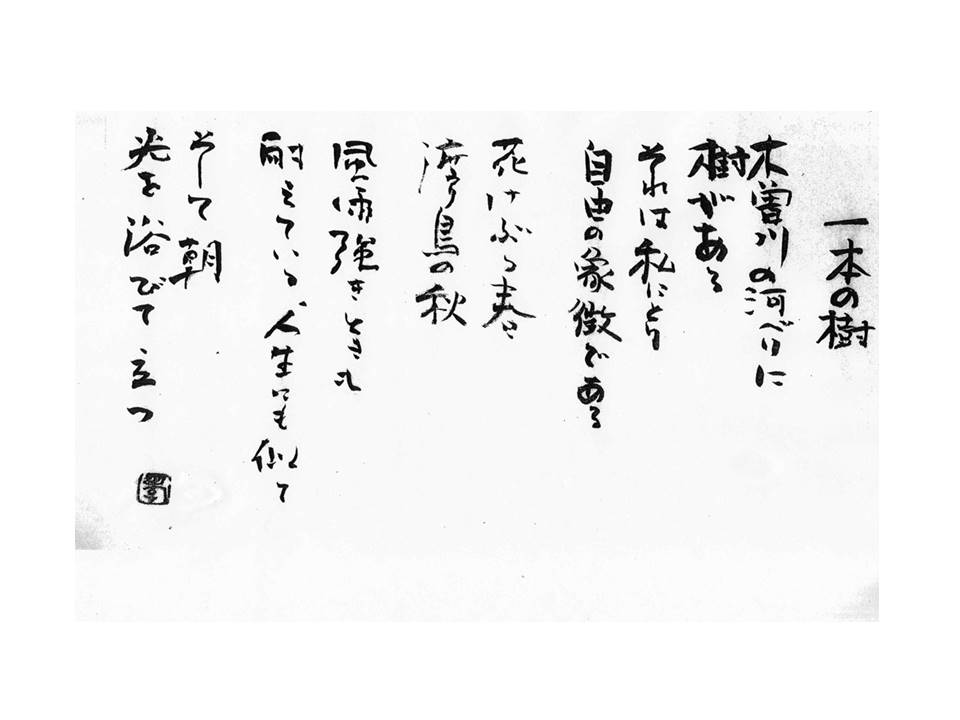 一本の樹
木曽川の河べりに
樹がある
それは私にとり
自由の象徴である
花けぶる春
渡り鳥の秋
風雨強きときも
耐えている人生にも似て
そして朝
光を浴びて立つ